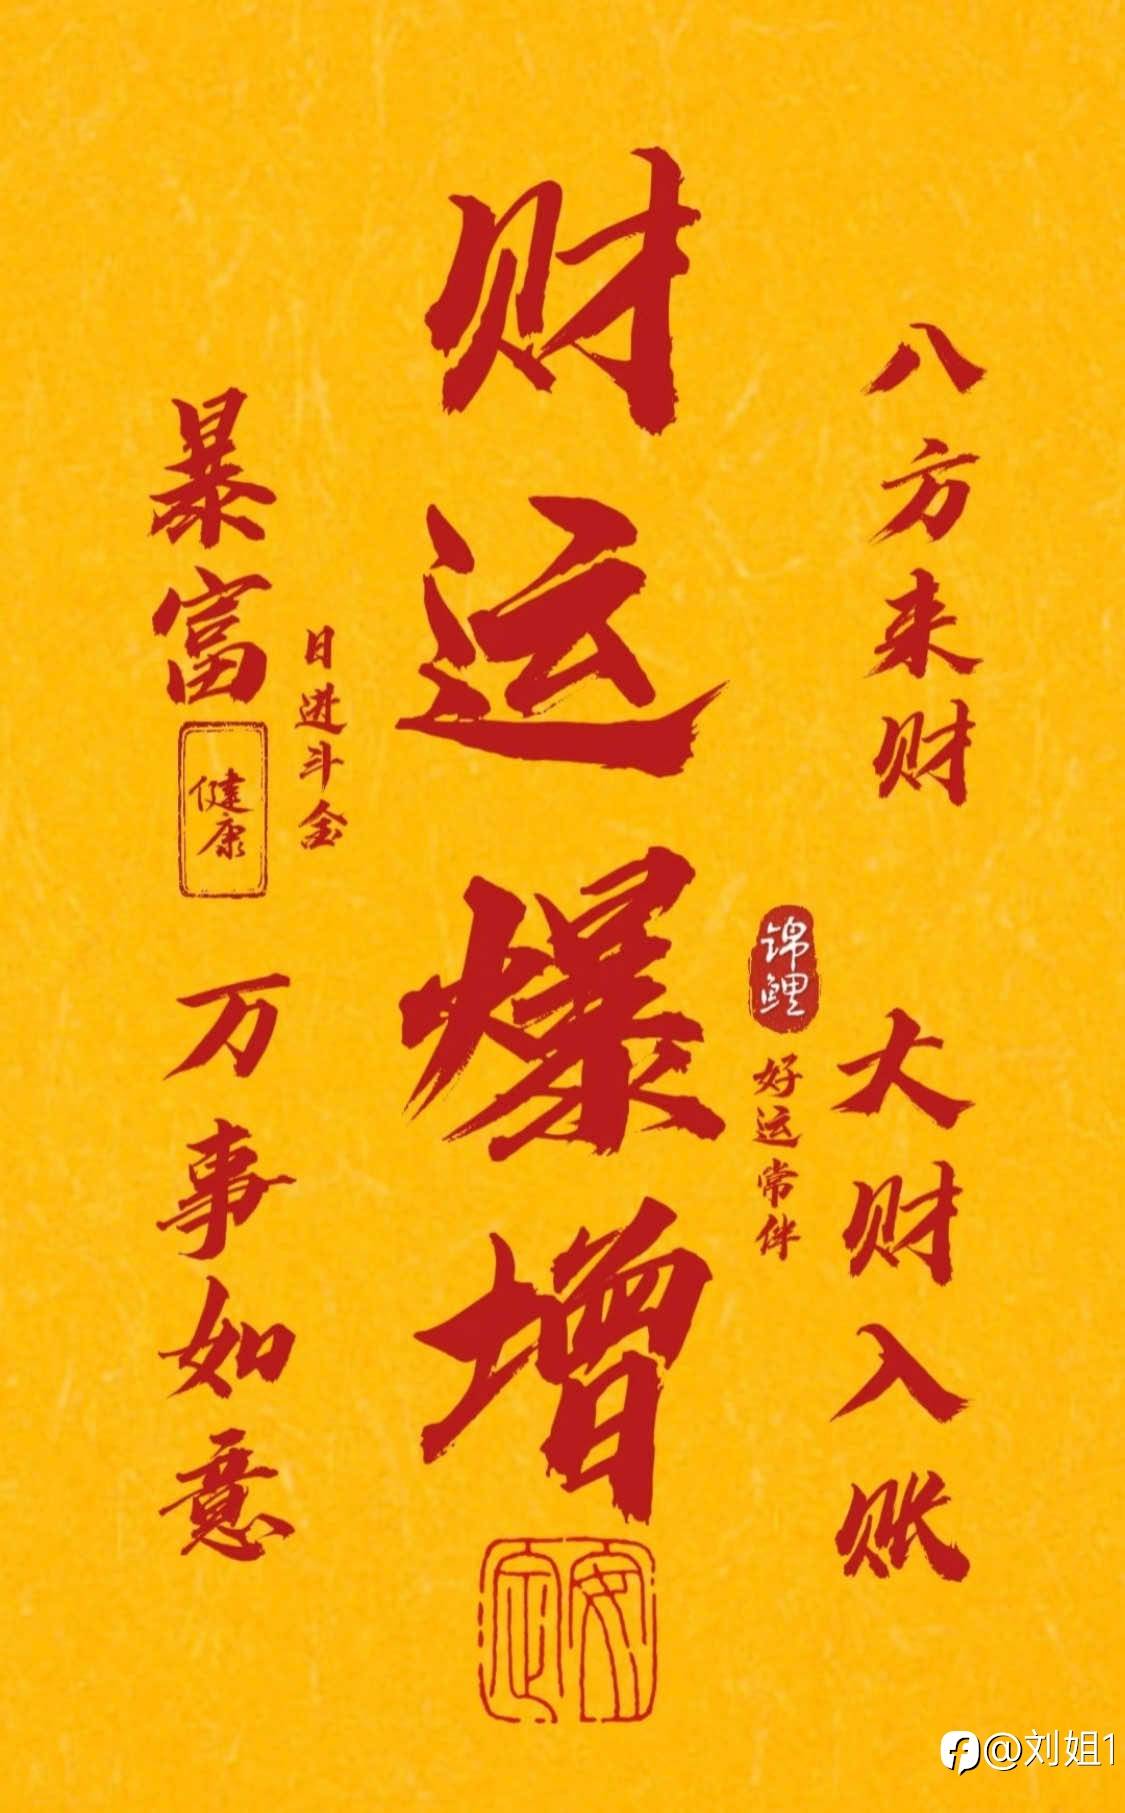 八方来财
大财入账
锦鲤
好运常伴
财运爆增
日进斗金
暴富
健康
万事如意
安定
@刘姐1